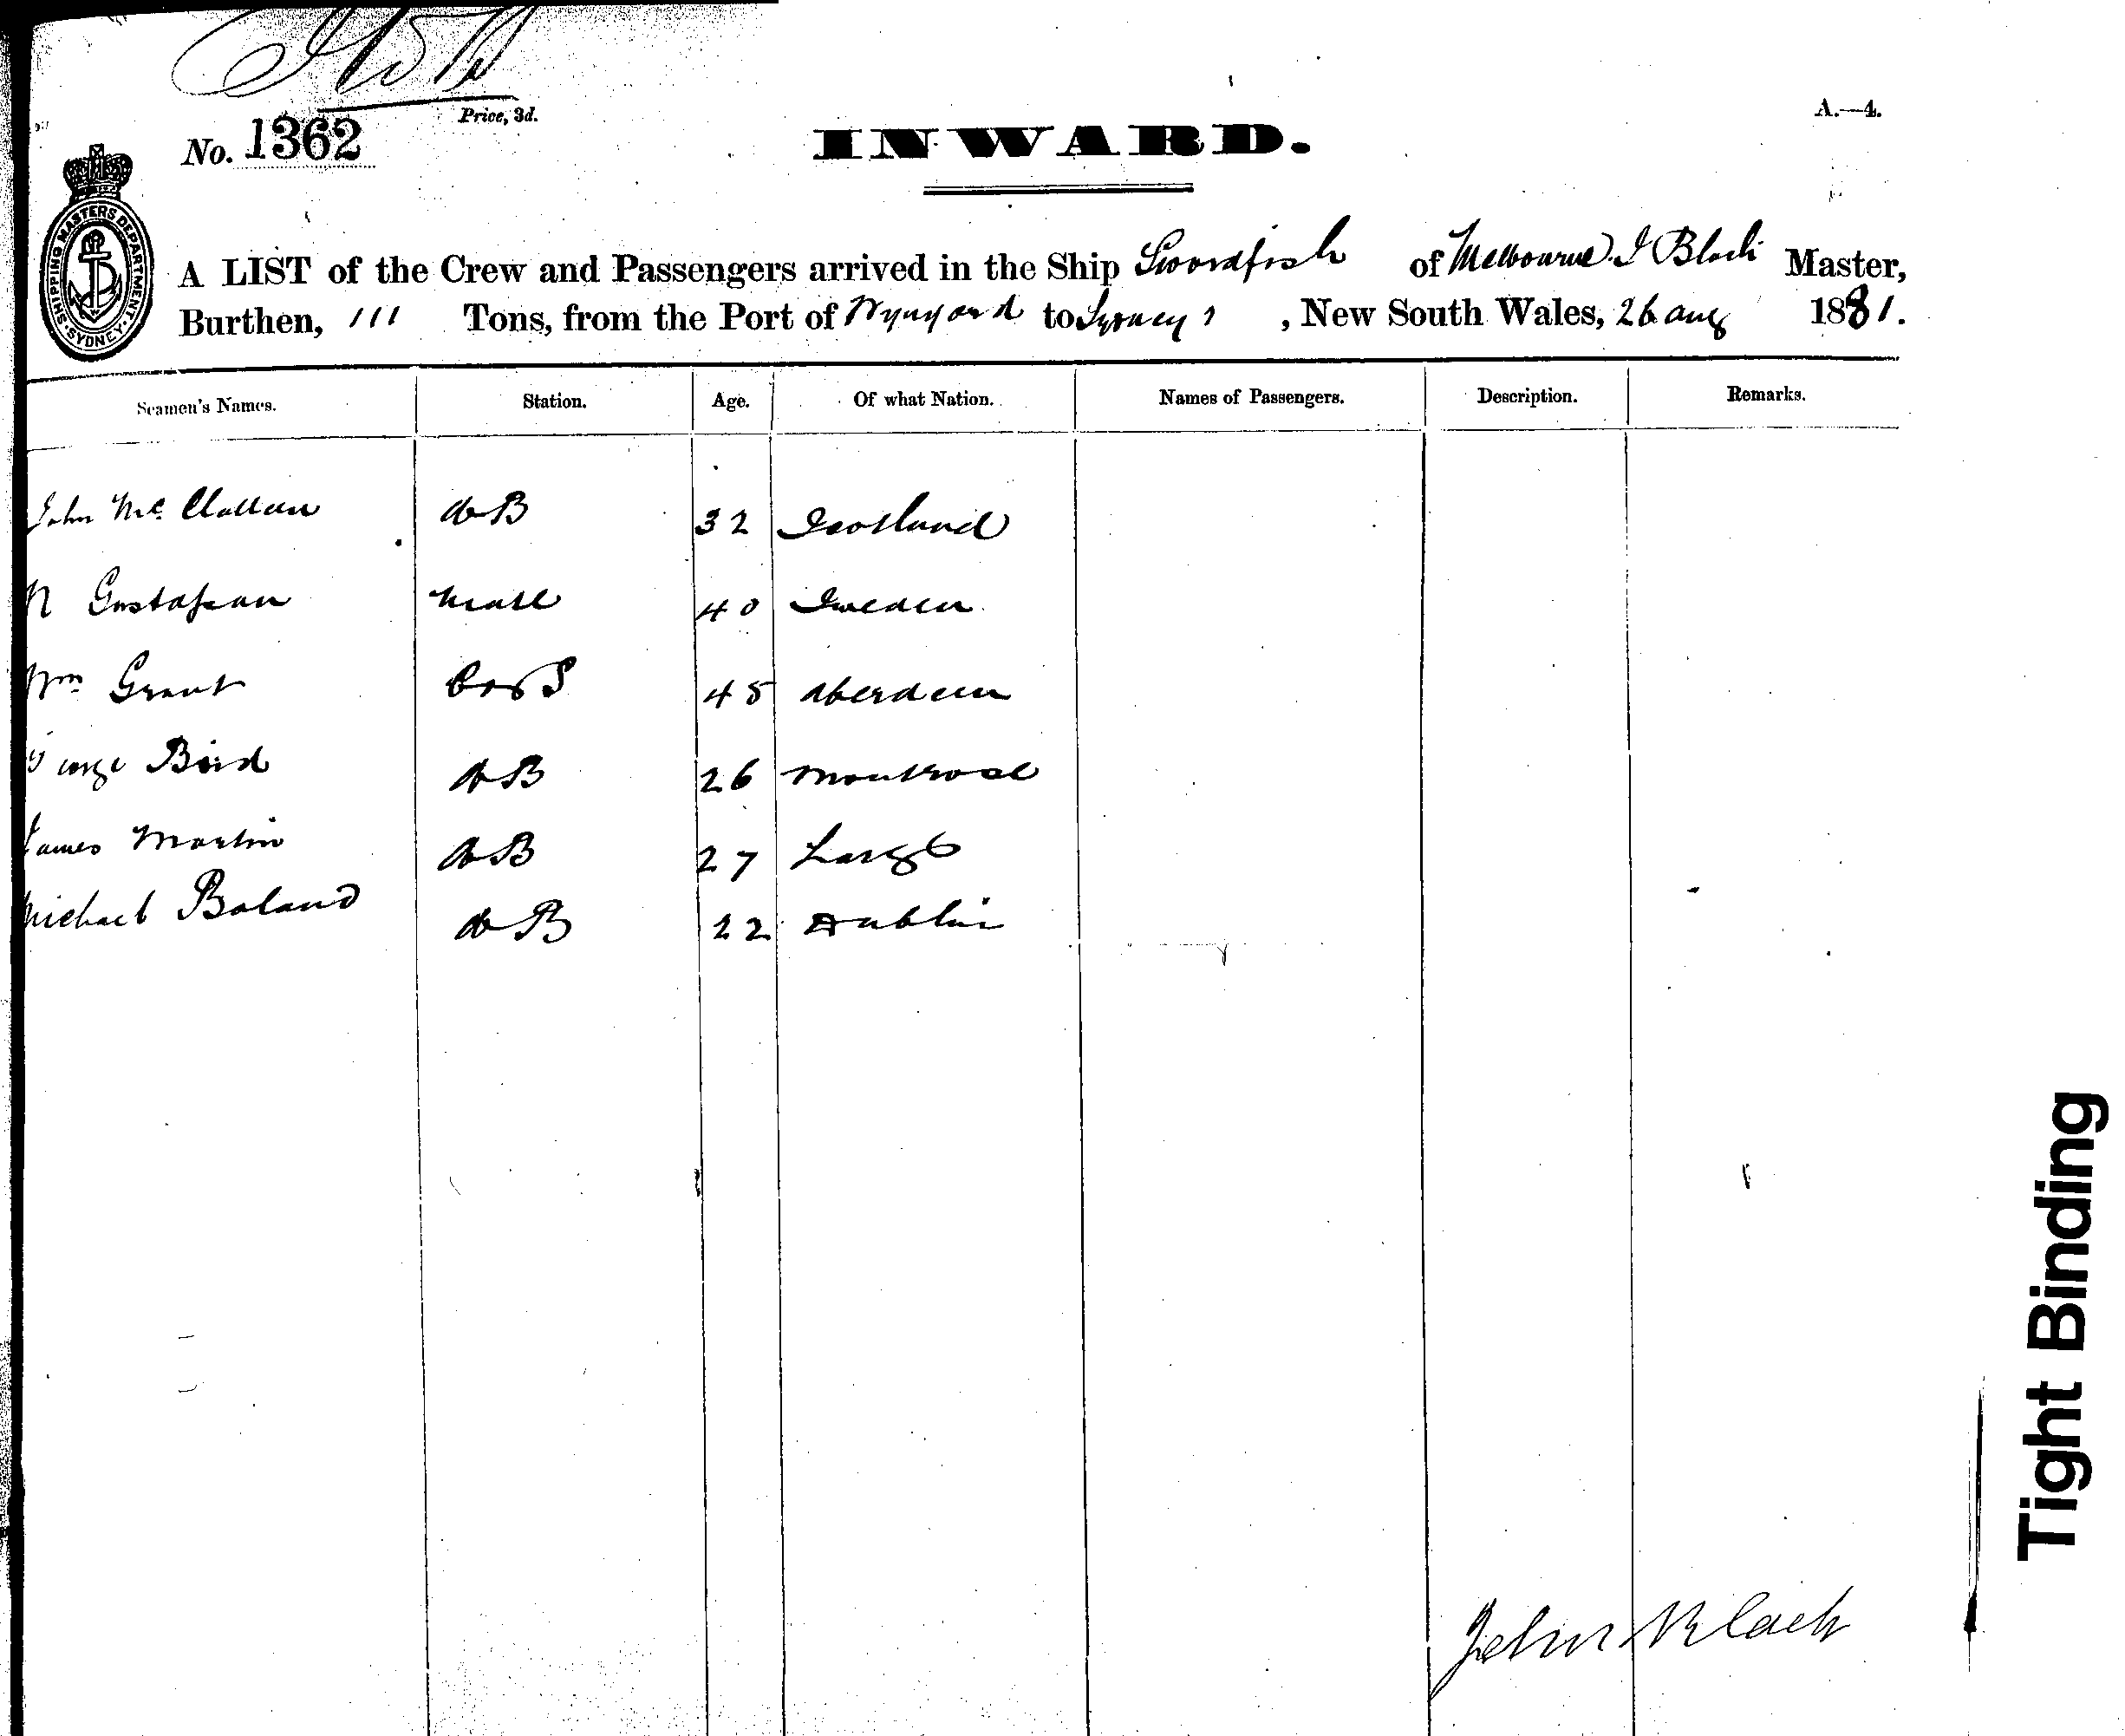 Price, 3d.
A.—4.
No. 1362
INWARD.
SHIPPING MASTERS DEPARTMENT. SYDNEY.
A LIST of the Crew and Passengers arrived in the Ship Swordfish of Melbourne. J Black Master,
Burthen, 111 Tons, from the Port of Wynyard to Sydney, New South Wales, 26 aug 1881.
Seamen's Names. Station. Age. Of what Nation. Names of Passengers. Description. Remarks.
John Mc Clallan AB 32 Scotland
N Gustafsan Mate 40 Sweden
Wm Grant C & S 45 Aberdeen
George Bird AB 26 Montrose
James Martin AB 27 Largo
Michael Boland AB 22 Dublin
John Black
Tight Binding